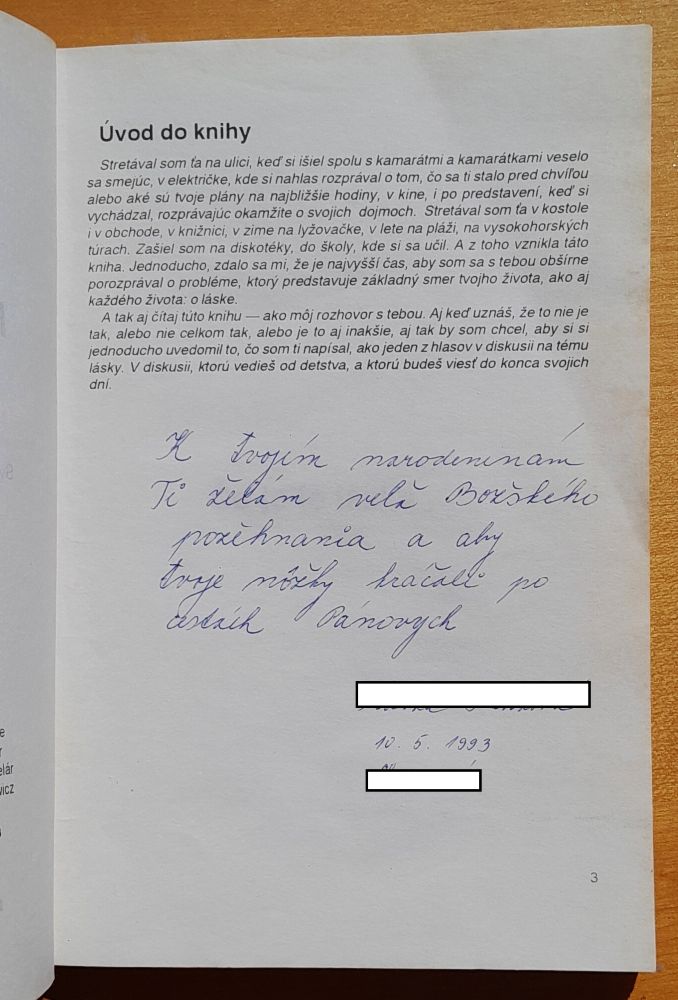 Úvod do knihy
Stretával som ťa na ulici, keď si išiel spolu s kamarátmi a kamarátkami veselo
sa smejúc, v električke, kde si nahlas rozprával o tom, čo sa ti stalo pred chvíľou
alebo aké sú tvoje plány na najbližšie hodiny, v kine, i po predstavení, keď si
vychádzal, rozprávajúc okamžite o svojich dojmoch. Stretával som ťa v kostole
i v obchode, v knižnici, v zime na lyžovačke, v lete na pláži, na vysokohorských
túrach. Zašiel som na diskotéky, do školy, kde si sa učil. A z toho vznikla táto
kniha. Jednoducho, zdalo sa mi, že je najvyšší čas, aby som sa s tebou obšírne
porozprával o probléme, ktorý predstavuje základný smer tvojho života, ako aj
každého života: o láske.
A tak aj čítaj túto knihu — ako môj rozhovor s tebou. Aj keď uznáš, že to nie je
tak, alebo nie celkom tak, alebo je to aj inakšie, aj tak by som chcel, aby si si
jednoducho uvedomil to, čo som ti napísal, ako jeden z hlasov v diskusii na tému
lásky. V diskusii, ktorú vedieš od detstva, a ktorú budeš viesť do konca svojich
dní.
K tvojím narodeninám
Ti želám veľa Božského
požehnania a aby
tvoje nôžky kráčali po
cestách Pánových
10. 5. 1993
3